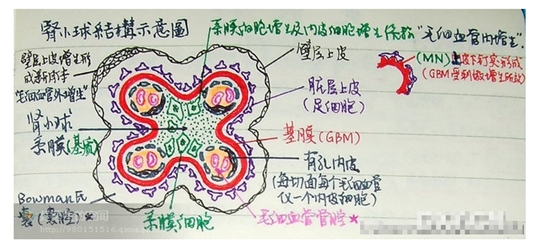 肾小球结構示意圖
系膜细胞增生及内皮细胞增生俗称"毛细血管内增生".
壁层上皮增生形
成新月体
毛细血管外增生
壁层上皮
(MN)
钉突形成
(GBM受刺激增生所致)
脏层上皮
(足细胞)
肾小球
系膜(基质)
基膜(GBM)
有孔内皮
(每切面每个毛细血管
仅一个内皮细胞)
Bowman氏
囊(囊腔)★
系膜细胞
毛细血管管腔★